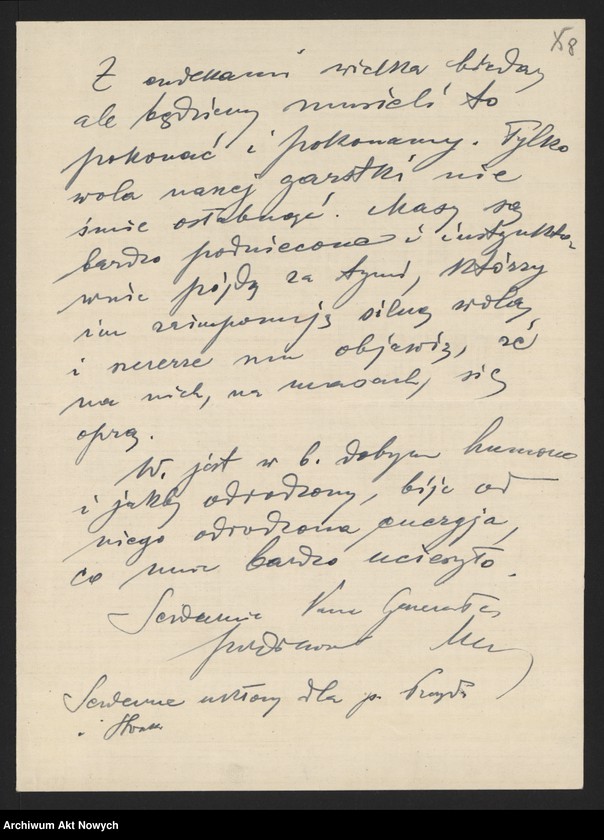 58
Z endekami wielka bieda,
ale będziemy musieli to
pokonać i pokonamy. Tylko
wola naszej garstki nie
śmie osłabnąć. Masy są
bardzo podniecone i instynkto-
wnie pójdą za tymi, którzy
im zaimponują silną wolą
i szczerze im objawią, że
na nich, na masach, się
oprą.
W. jest w b. dobrym humorze
i jakby odrodzony, bije od
niego odrodzona energja,
co mnie bardzo ucieszyło.
Serdecznie Pana Generała
pozdrawiam
Serdeczne ukłony dla p.
i
Archiwum Akt Nowych